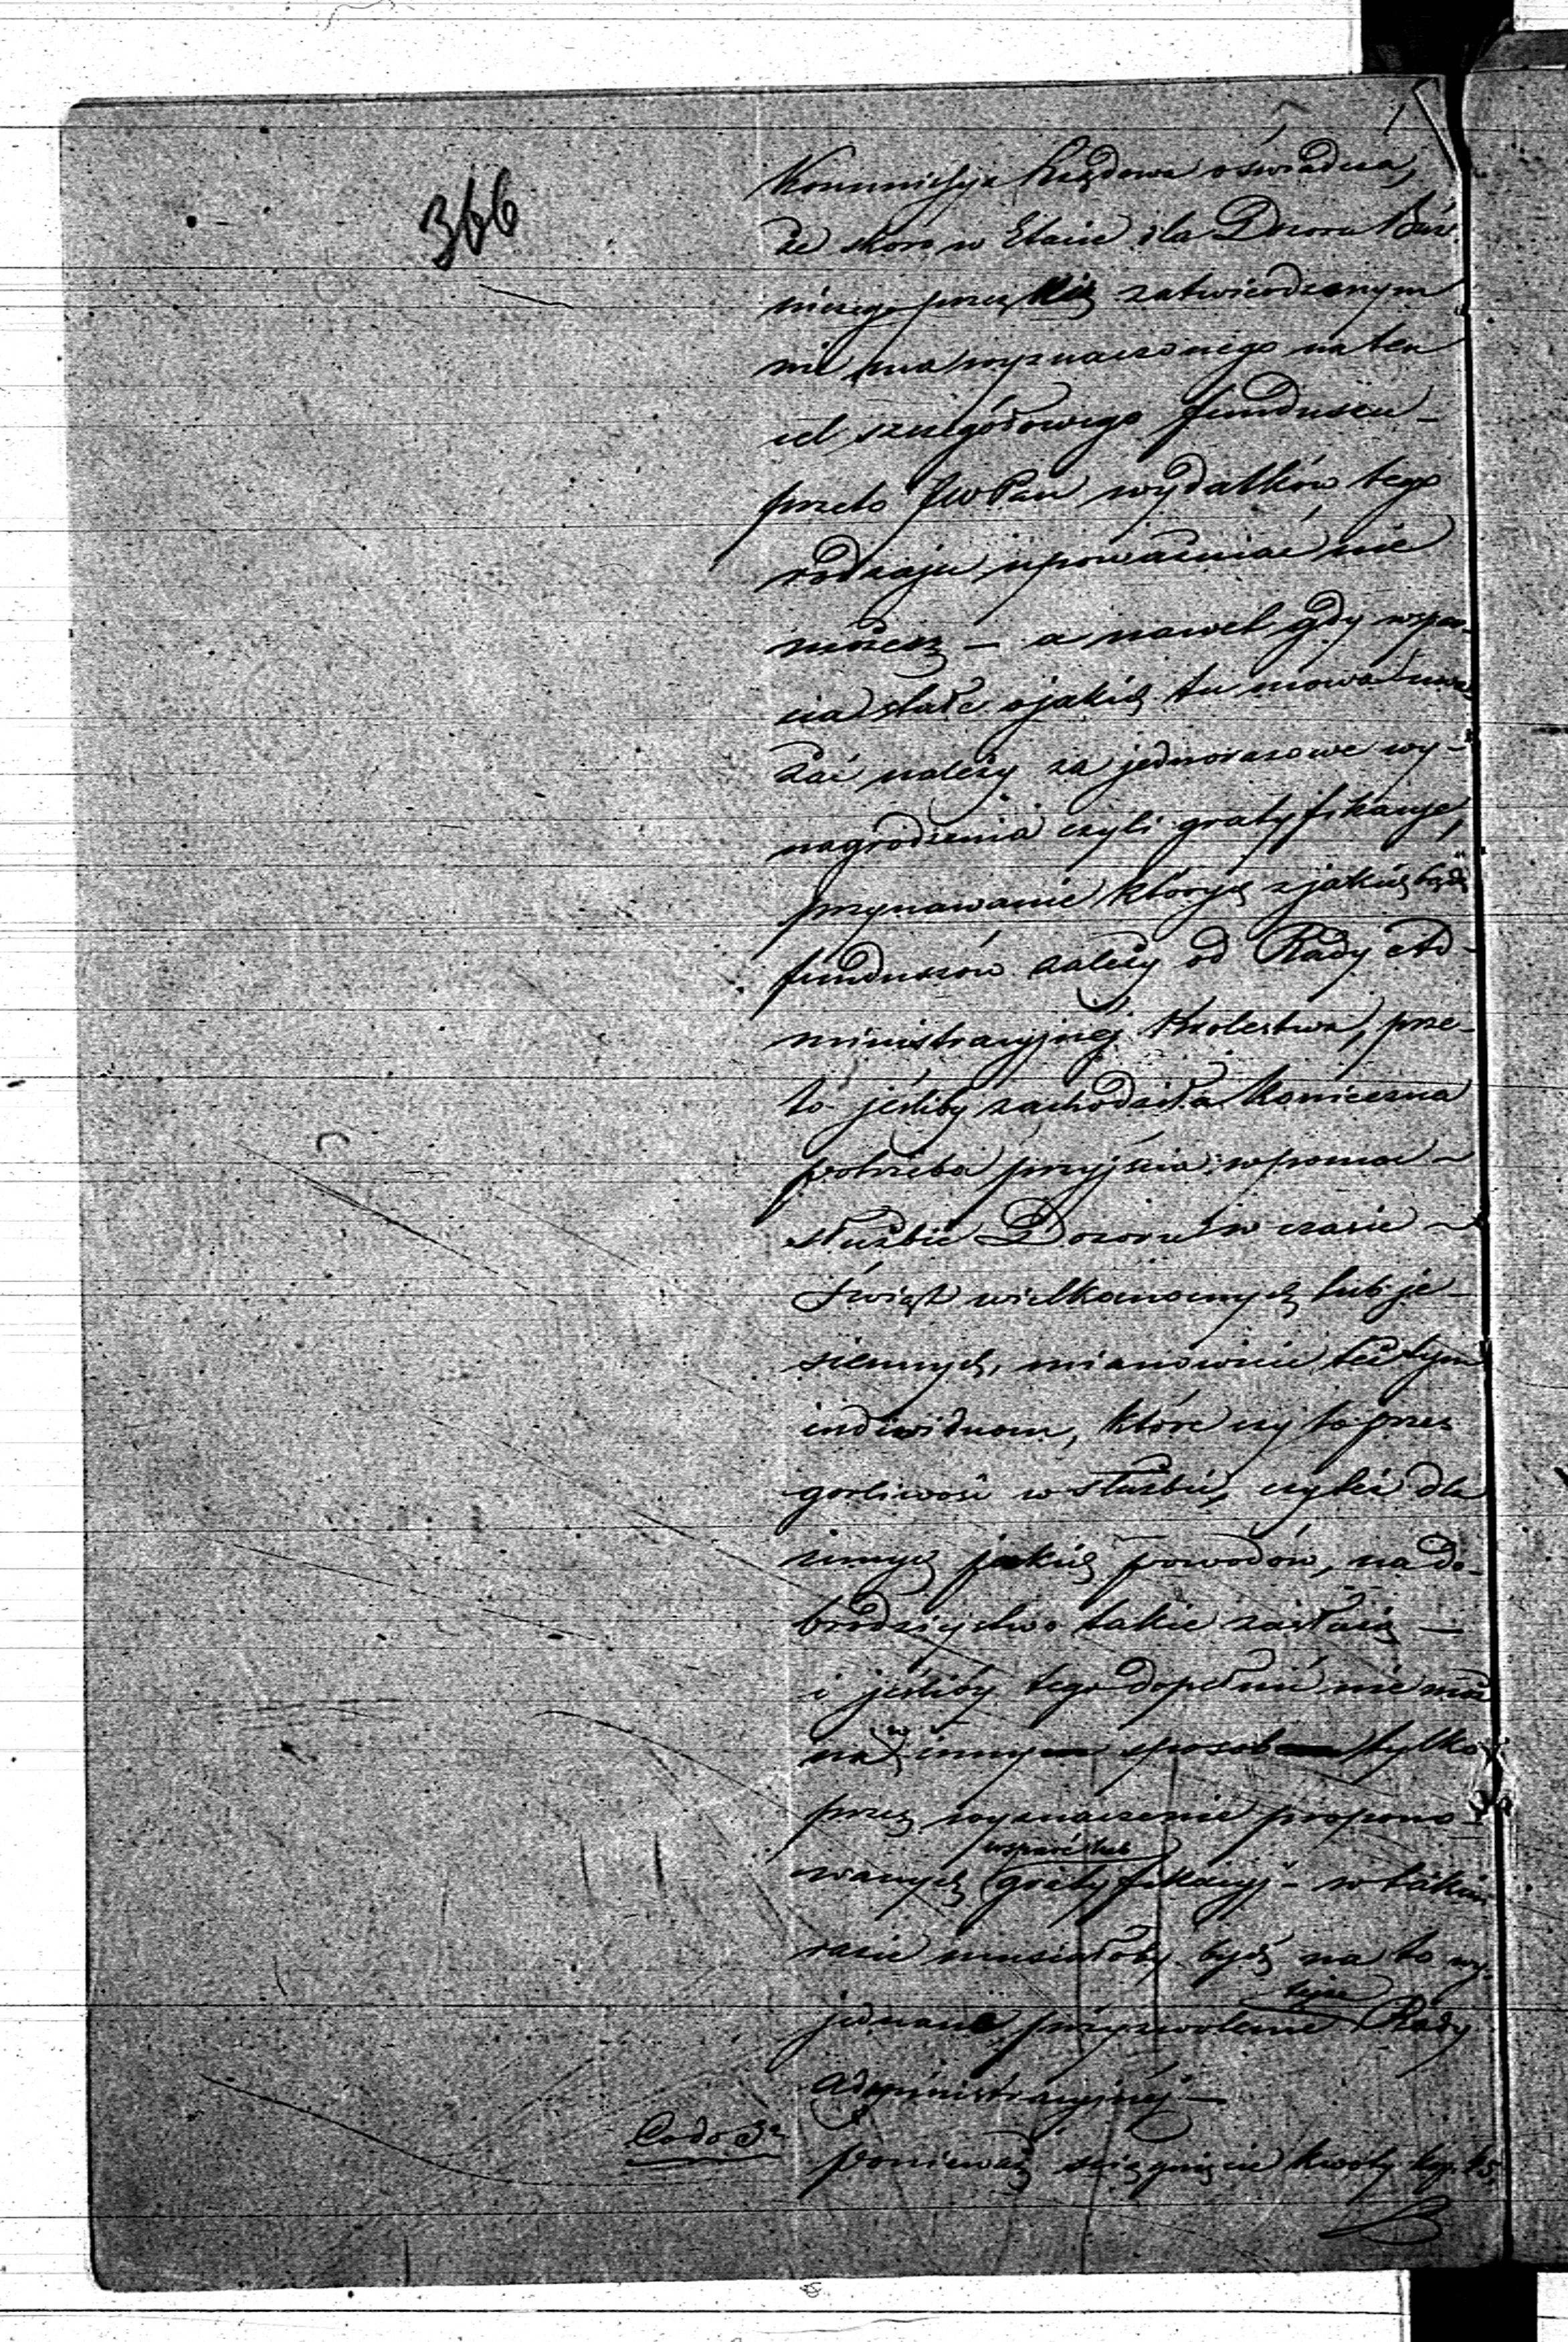 366
Kommissyja Rządowa oświadcza,
że skoro w Etacie dla Dozoru Bóż-
niczego przez Nią zatwierdzonym
nie ma wyznaczonego na ten
cel szczegółowego funduszu –
przeto JWPan wydatków tego
rodzaju upoważniać nie
możesz – a nawet gdy wspar-
cia stałe o jakich tu mowa uwa-
żać należy za jednorazowe wy-
nagrodzenia czyli gratyfikacye,
przyznawanie których z jakichbądź
funduszów zależy od Rady Ad-
ministracyjnej Królestwa, prze-
to jeśliby zachodziła konieczna
potrzeba przyjścia w pomoc –
służbie Dozoru w czasie –
Świąt wielkanocnych lub je-
siennych, mianowicie też tym
indiwiduom, które czy to przez
gorliwość w służbie, czyli dla
innych jakich powodów, na do-
brodziejstwo takie zasłużą –
i jeśliby tego dopełnić nie moż
na w innym sposob tylko
przez wyznaczenie propono-
wsparć lub
wanych gratyfikacyj – w takim
razie musiałoby bydź na to wy-
tejże
jednane przyzwolenie Rady
Administracyjnej –
Co do 3º
ponieważ ściągnięcie kwoty kop. 45